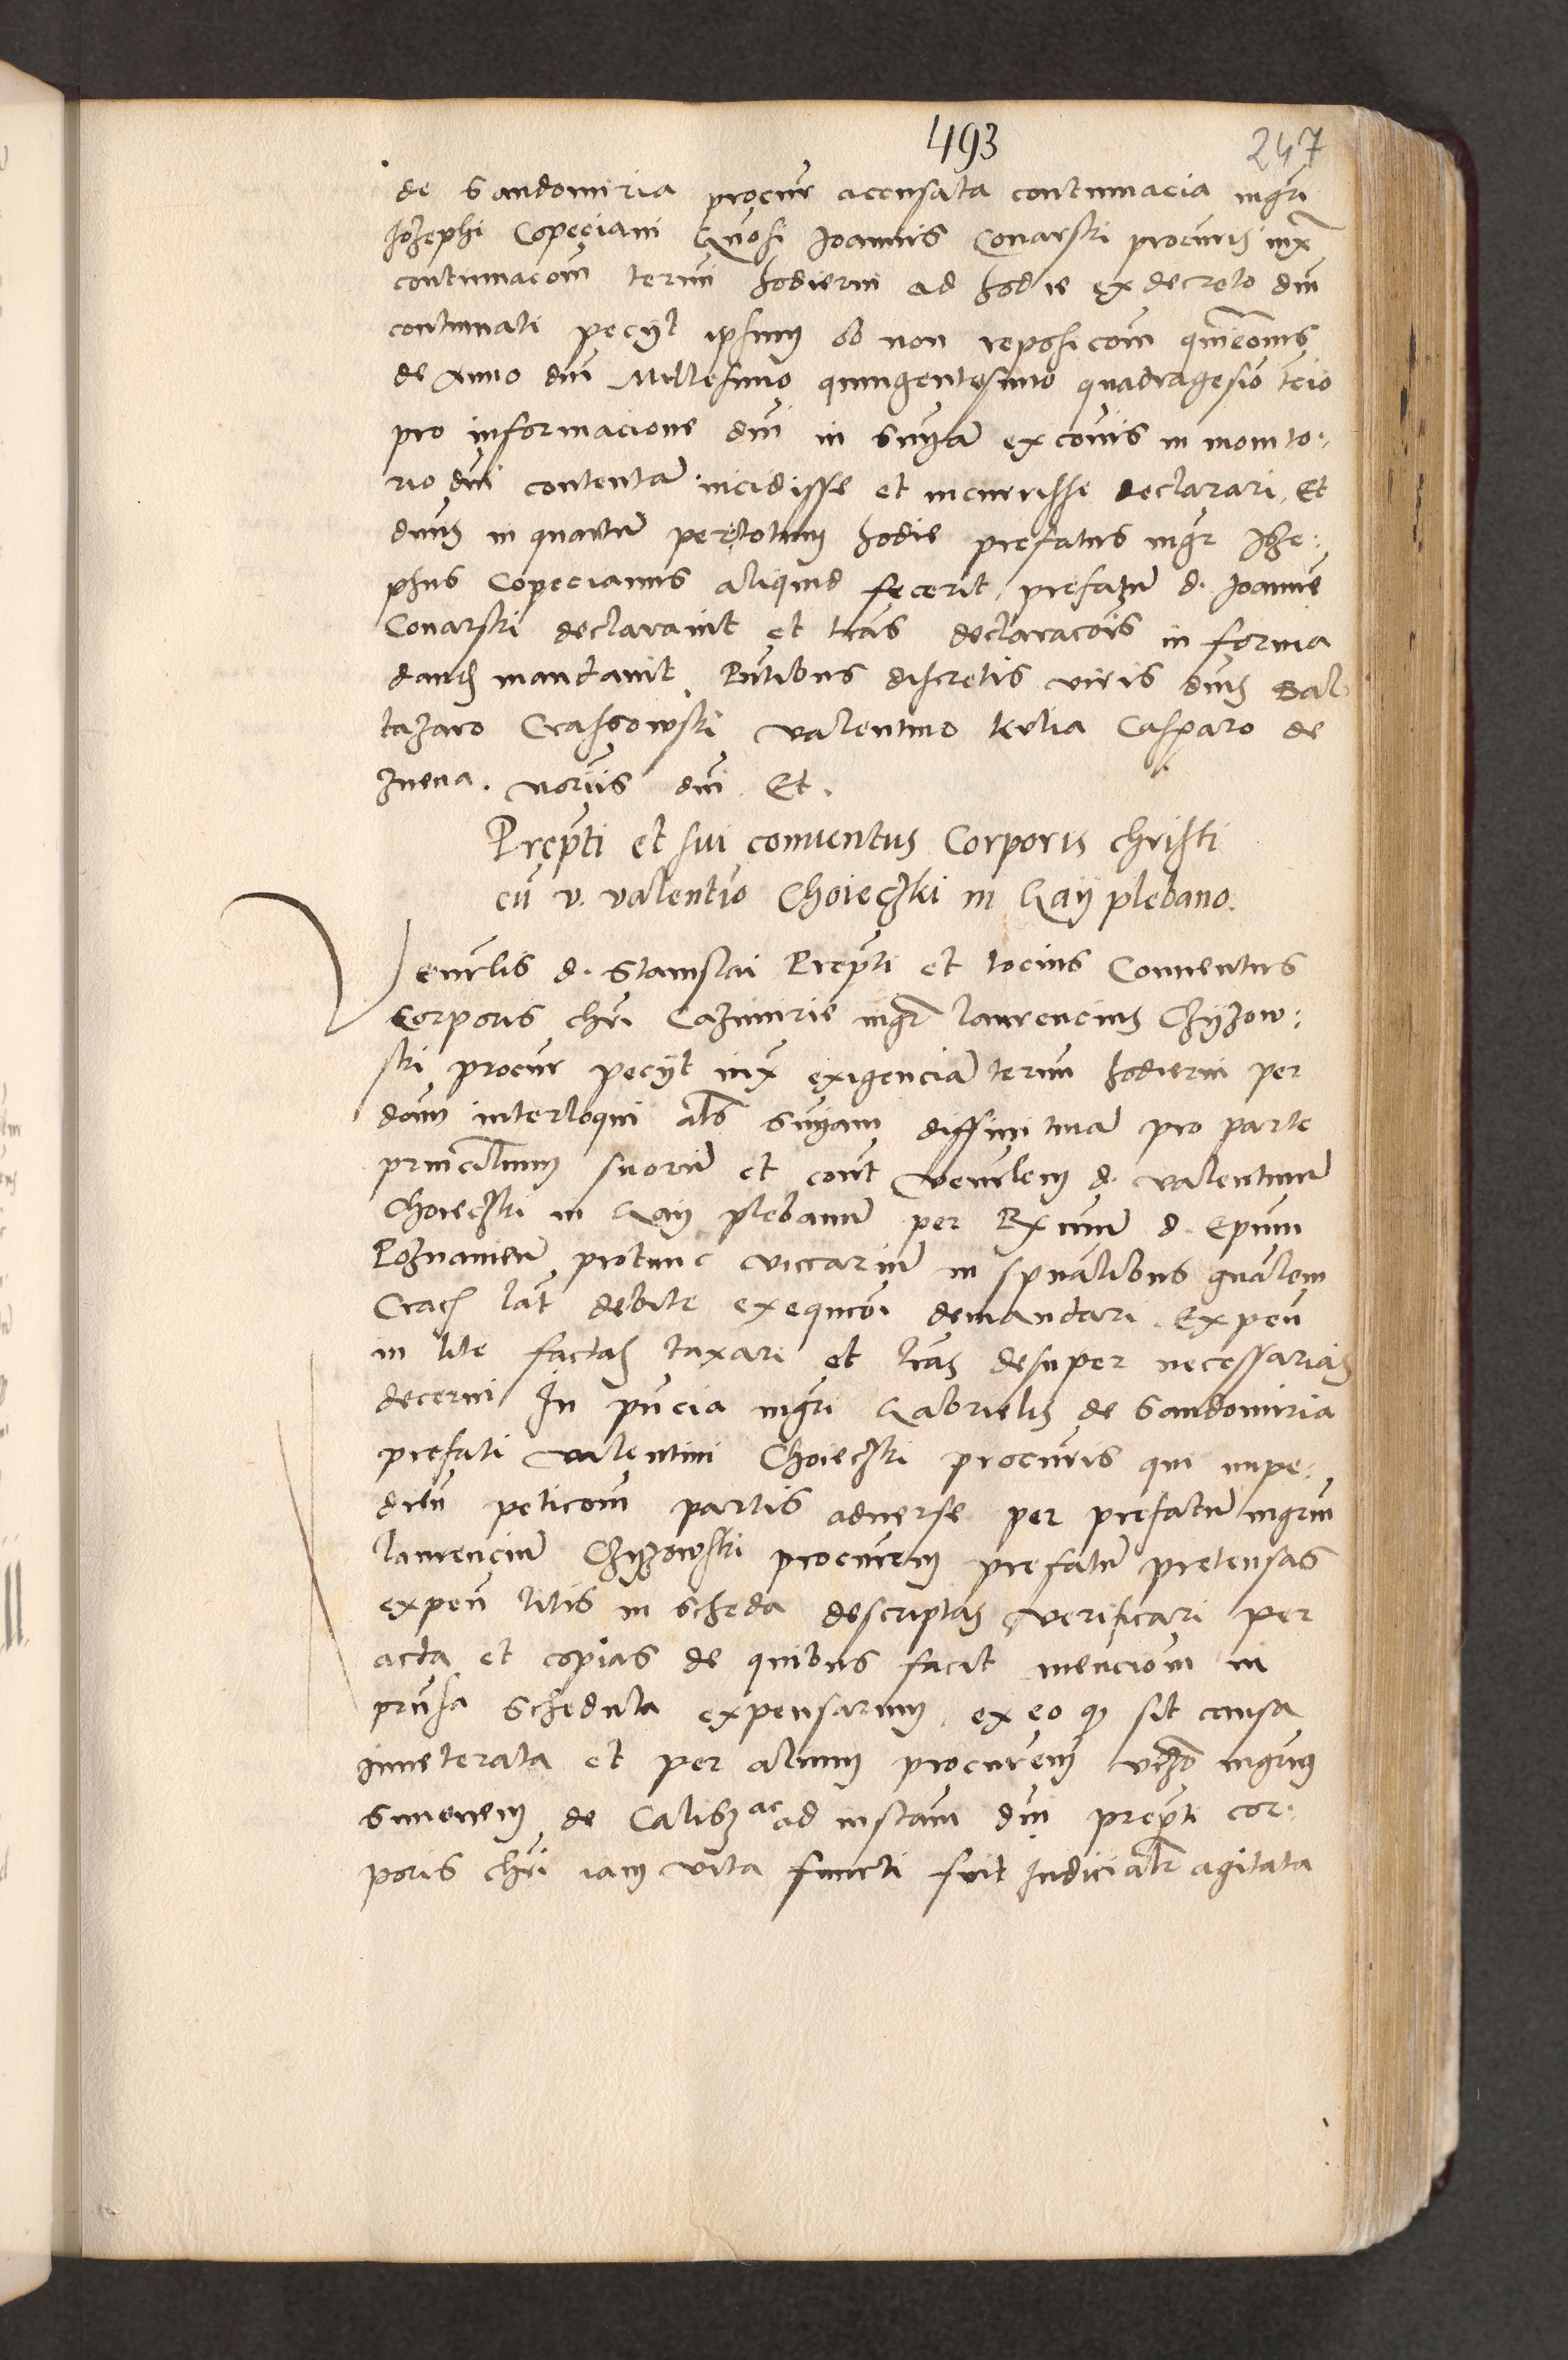 493
247
de Sandomiria procur accusata contumacia mgri
Jozephi Copeciani Gnosi Joannis Conarski procuris iux
contumacom termi hodierni ad hodie ex decreto dni
continuati pecyt ipsum ob non reposicom
de Anno dni Millesimo quingentesimo quadragesio tcio
pro informacione dni in snyam excoīs in monito:
rio dni contentā incidisse et incurrisse declarari. Et
dnus in quantū pertotum hodie prefatus mgr Joze:
phus Copecianus aliquid fecerit, prefatū d. Joannē
Conarski declaravit et lras declaracois in forma
dand mandavit. Pntibus discretis viris dnis Bal
tazaro Crassowski Valentino Casparo de
Znena. noriis dni. Et.
Prepti et sui conventus Corporis christi
cū v. valentio Choieczki in Gay plebano.
Venrlis d. Stanislai Prepti et tocius Conventus
Corporis chri Cazimirie mgr laurencius Czyzow:
ski procur pecyt iux exigenciā termi hodierni per
dnum interloqui als snyam diffinitivā pro parte
principalium suorū et cont Venrlem d. valentinū
Choieczki in Gay plebanū per Rx mum d. Epum
Poznanien protunc viccariū in spualibus gnalem
Crac lat debite exequcoi demandari. Expen
in lite factas taxari et lras desuper necessarias
decerni In pncia mgri Gabrielis de Sandomiria
prefati valentini Choieczki procuris qui impe:
dien peticom partis adverse per prefatū mgrum
laurenciū Czyzowski procurem prefatū pretensas
expen litis in scheda descriptas verificari per
acta et copias de quibus facit mencion in
prnsa schedula expensarum. ex eo q sit causa
inveterata et per alium procurem vczo mgrum
Simonem de Calisz ac ad instam dni prepti cor:
poris chri iam vita functi fuit Judicialr agitata